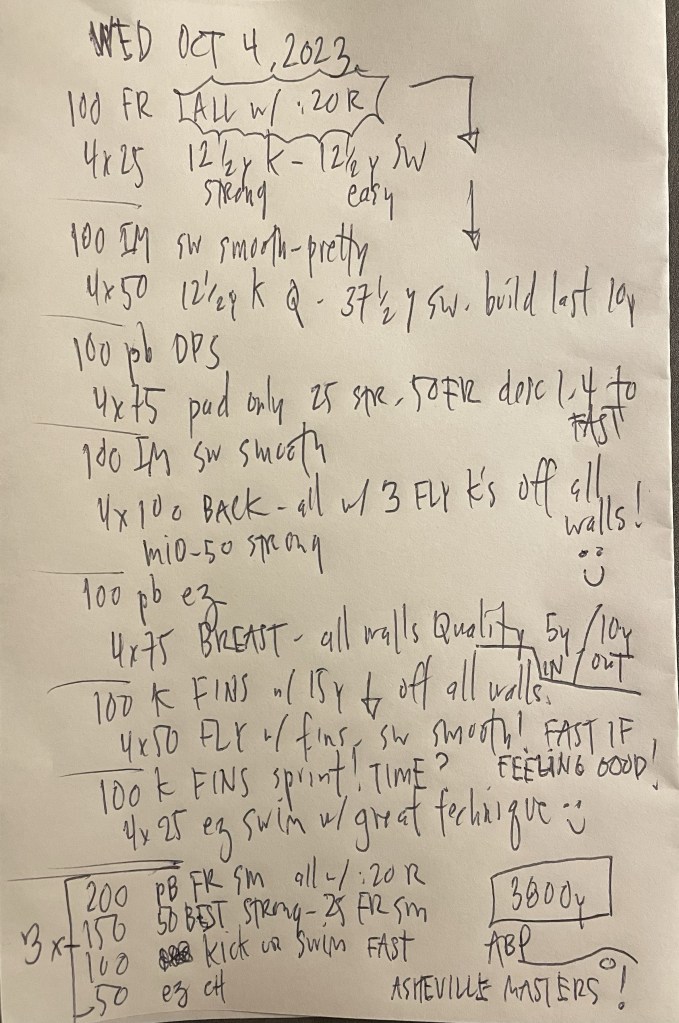 WED OCT 4, 2023
100 FR ALL w/ :20 R
4x25 12½y K - 12½y SW
strong easy
100 IM SW smooth-pretty
4x50 12½y K Q - 37½y SW. build last 10y
100 pb DPS
4x75 pad only 25 str, 50 FR desc 1-4 to
FAST
100 IM SW smooth
4x100 BACK - all w/ 3 FLY K's off all
walls!
MID-50 strong
100 pb ez
4x75 BREAST - all walls Quality 5y/10y
IN/OUT
100 K FINS w/ 15y ↓ off all walls.
4x50 FLY w/ fins, SW smooth! FAST IF
FEELING GOOD!
100 K FINS sprint! TIME?
4x25 ez swim w/ great technique
200 pB FR SM all w/ :20 R
3x 150 50 BEST strong - 25 FR sm
100 kick or swim FAST
50 ez CH
3800y
ABP
ASHEVILLE MASTERS!